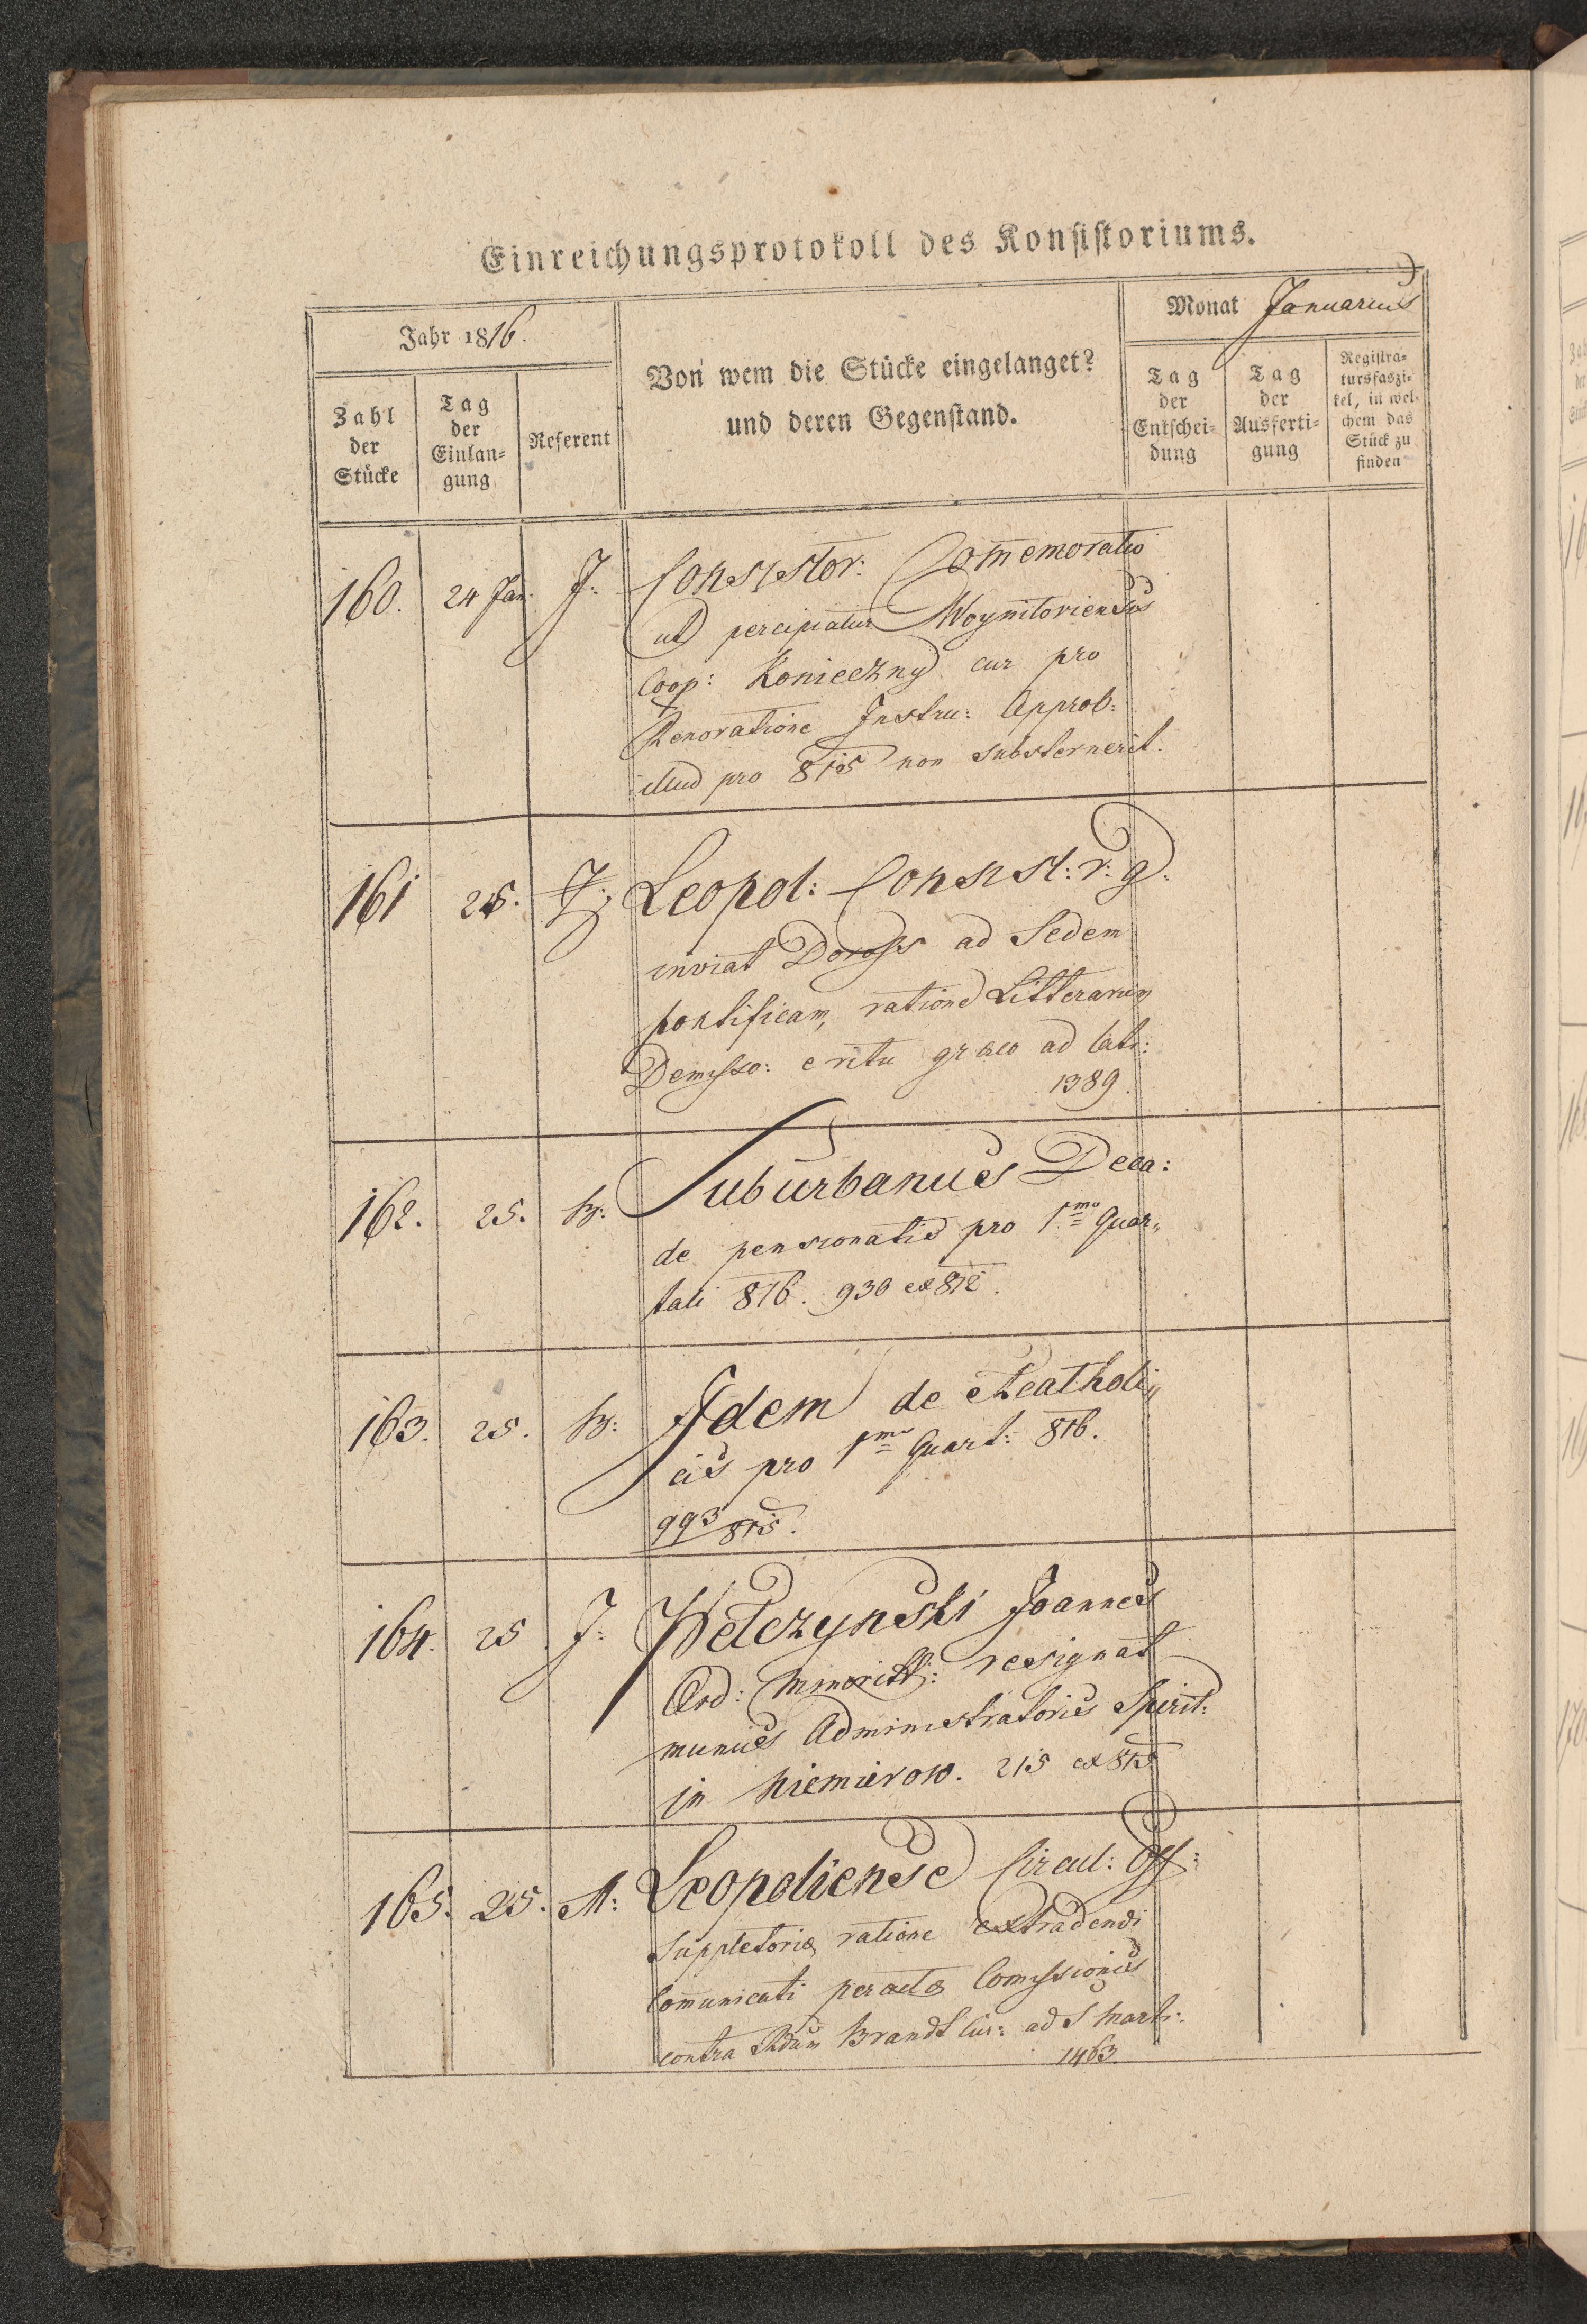 Einreichungsprotokoll des Konsistoriums.
Jahr 1816.
Monat Januarius
Zahl der Stücke
Tag der Einlan=gung
Referent
Von wem die Stücke eingelanget?
und deren Gegenstand.
Tag der Entschei=dung
Tag der Ausferti=gung
Registra=tursfaszi=kel, in wel=chem das Stück zu finden
160. 24 Jan. J: Consistor: Com̄emoratio
ut percipiatur Woynitoriensis
Coop: Konieczny cur pro
Renoratione Instru: Approb:
illud pro 815 non substernerit.
161 25. J: Leopol: Consist: r: g:
inviat ad Sedem
pontificam, ratione Litterarum
Demisso: e ritu graeo ad lati:
1389.
162. 25. Suburbanus Deca:
de pensionatis pro 1mo Quar„
tali 816. 930 ex 812.
163. 25. Idem de Acatholi„
cis pro 1mo Quart: 816.
993/815.
164. 25. J: Welczynski Joannes
Ord: Minorit: resignat
munus Administratoris Spirit:
in Niemirow. 215 ex 815
165. 25. M: Leopoliense Circul: Off:
Suppletoriæ ratione extradendi
Com̄unicati peractæ Comissionis
contra Adam Brandt Cur: ad S Marti:
1463.